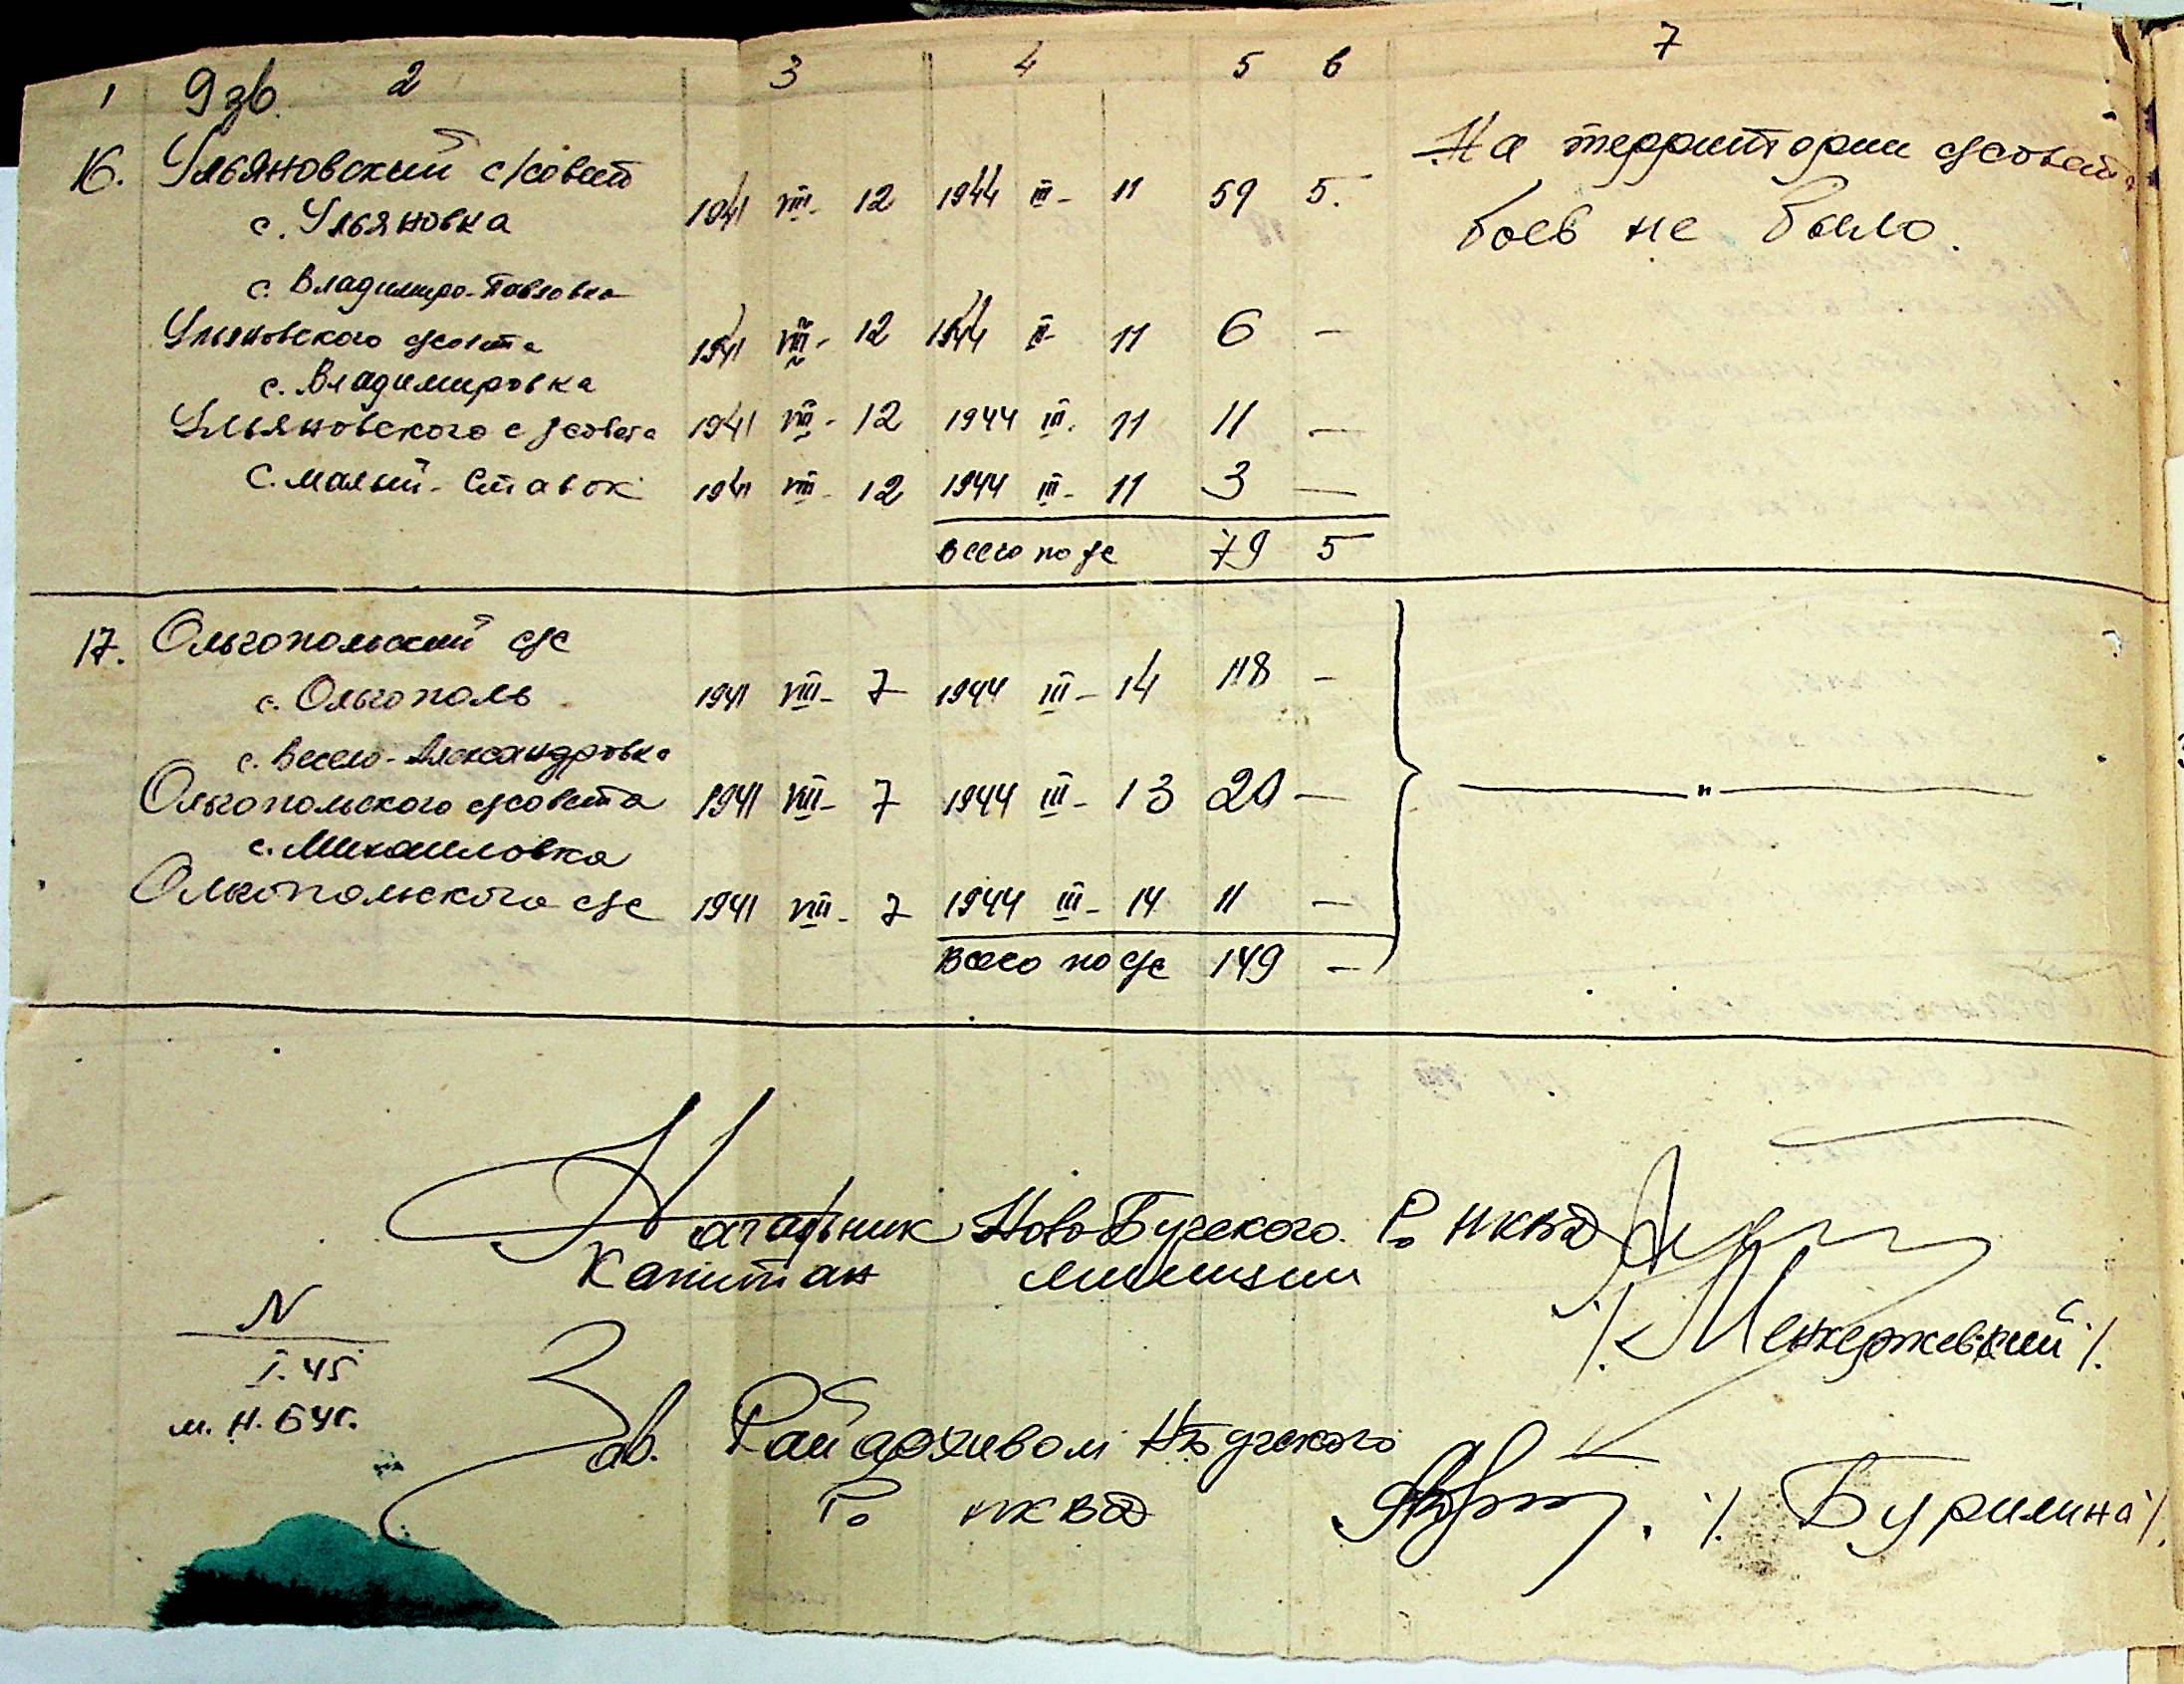 1 9зв. 2 3 4 5 6 7
16. Ульяновский с/совет
с. Ульяновка 1941 VIII- 12 1944 III- 11 59 5. На территории с/совета
боев не было.
с. Владимиро-Павловка
Ульяновского с/совета 1941 VIII- 12 1944 III- 11 6 —
с. Владимировка
Ульяновского с/совета 1941 VIII- 12 1944 III. 11 11 —
с. Малый-Ставок 1941 VIII- 12 1944 III- 11 3 —
Всего по с/с 79 5
17. Ольгопольский с/с
с. Ольгополь 1941 VIII- 7 1944 III- 14 118 —
с. Весело-Александровка
Ольгопольского с/совета 1941 VIII- 7 1944 III- 13 20 — — " —
с. Михайловка
Ольгопольского с/с 1941 VIII- 7 1944 III- 14 11 —
Всего по с/с 149 —
Начальник Ново-Бугского Ро НКВД
Капитан милиции
/. Менжержевский /.
N
I.45
м. Н. Буг.
Зав. Райархивом НБугского
Ро НКВД ./. Бурилина /.